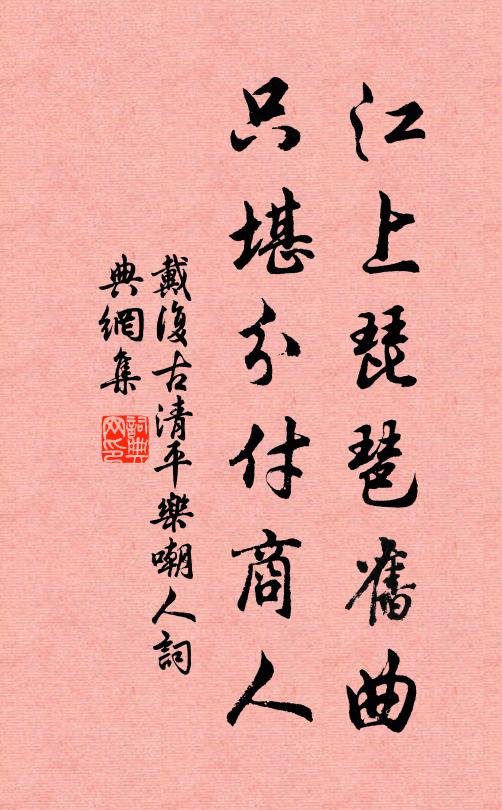 江上琵琶舊曲
只堪分付商人
戴復古清平樂嘲人詞
典網集
詞典
网印